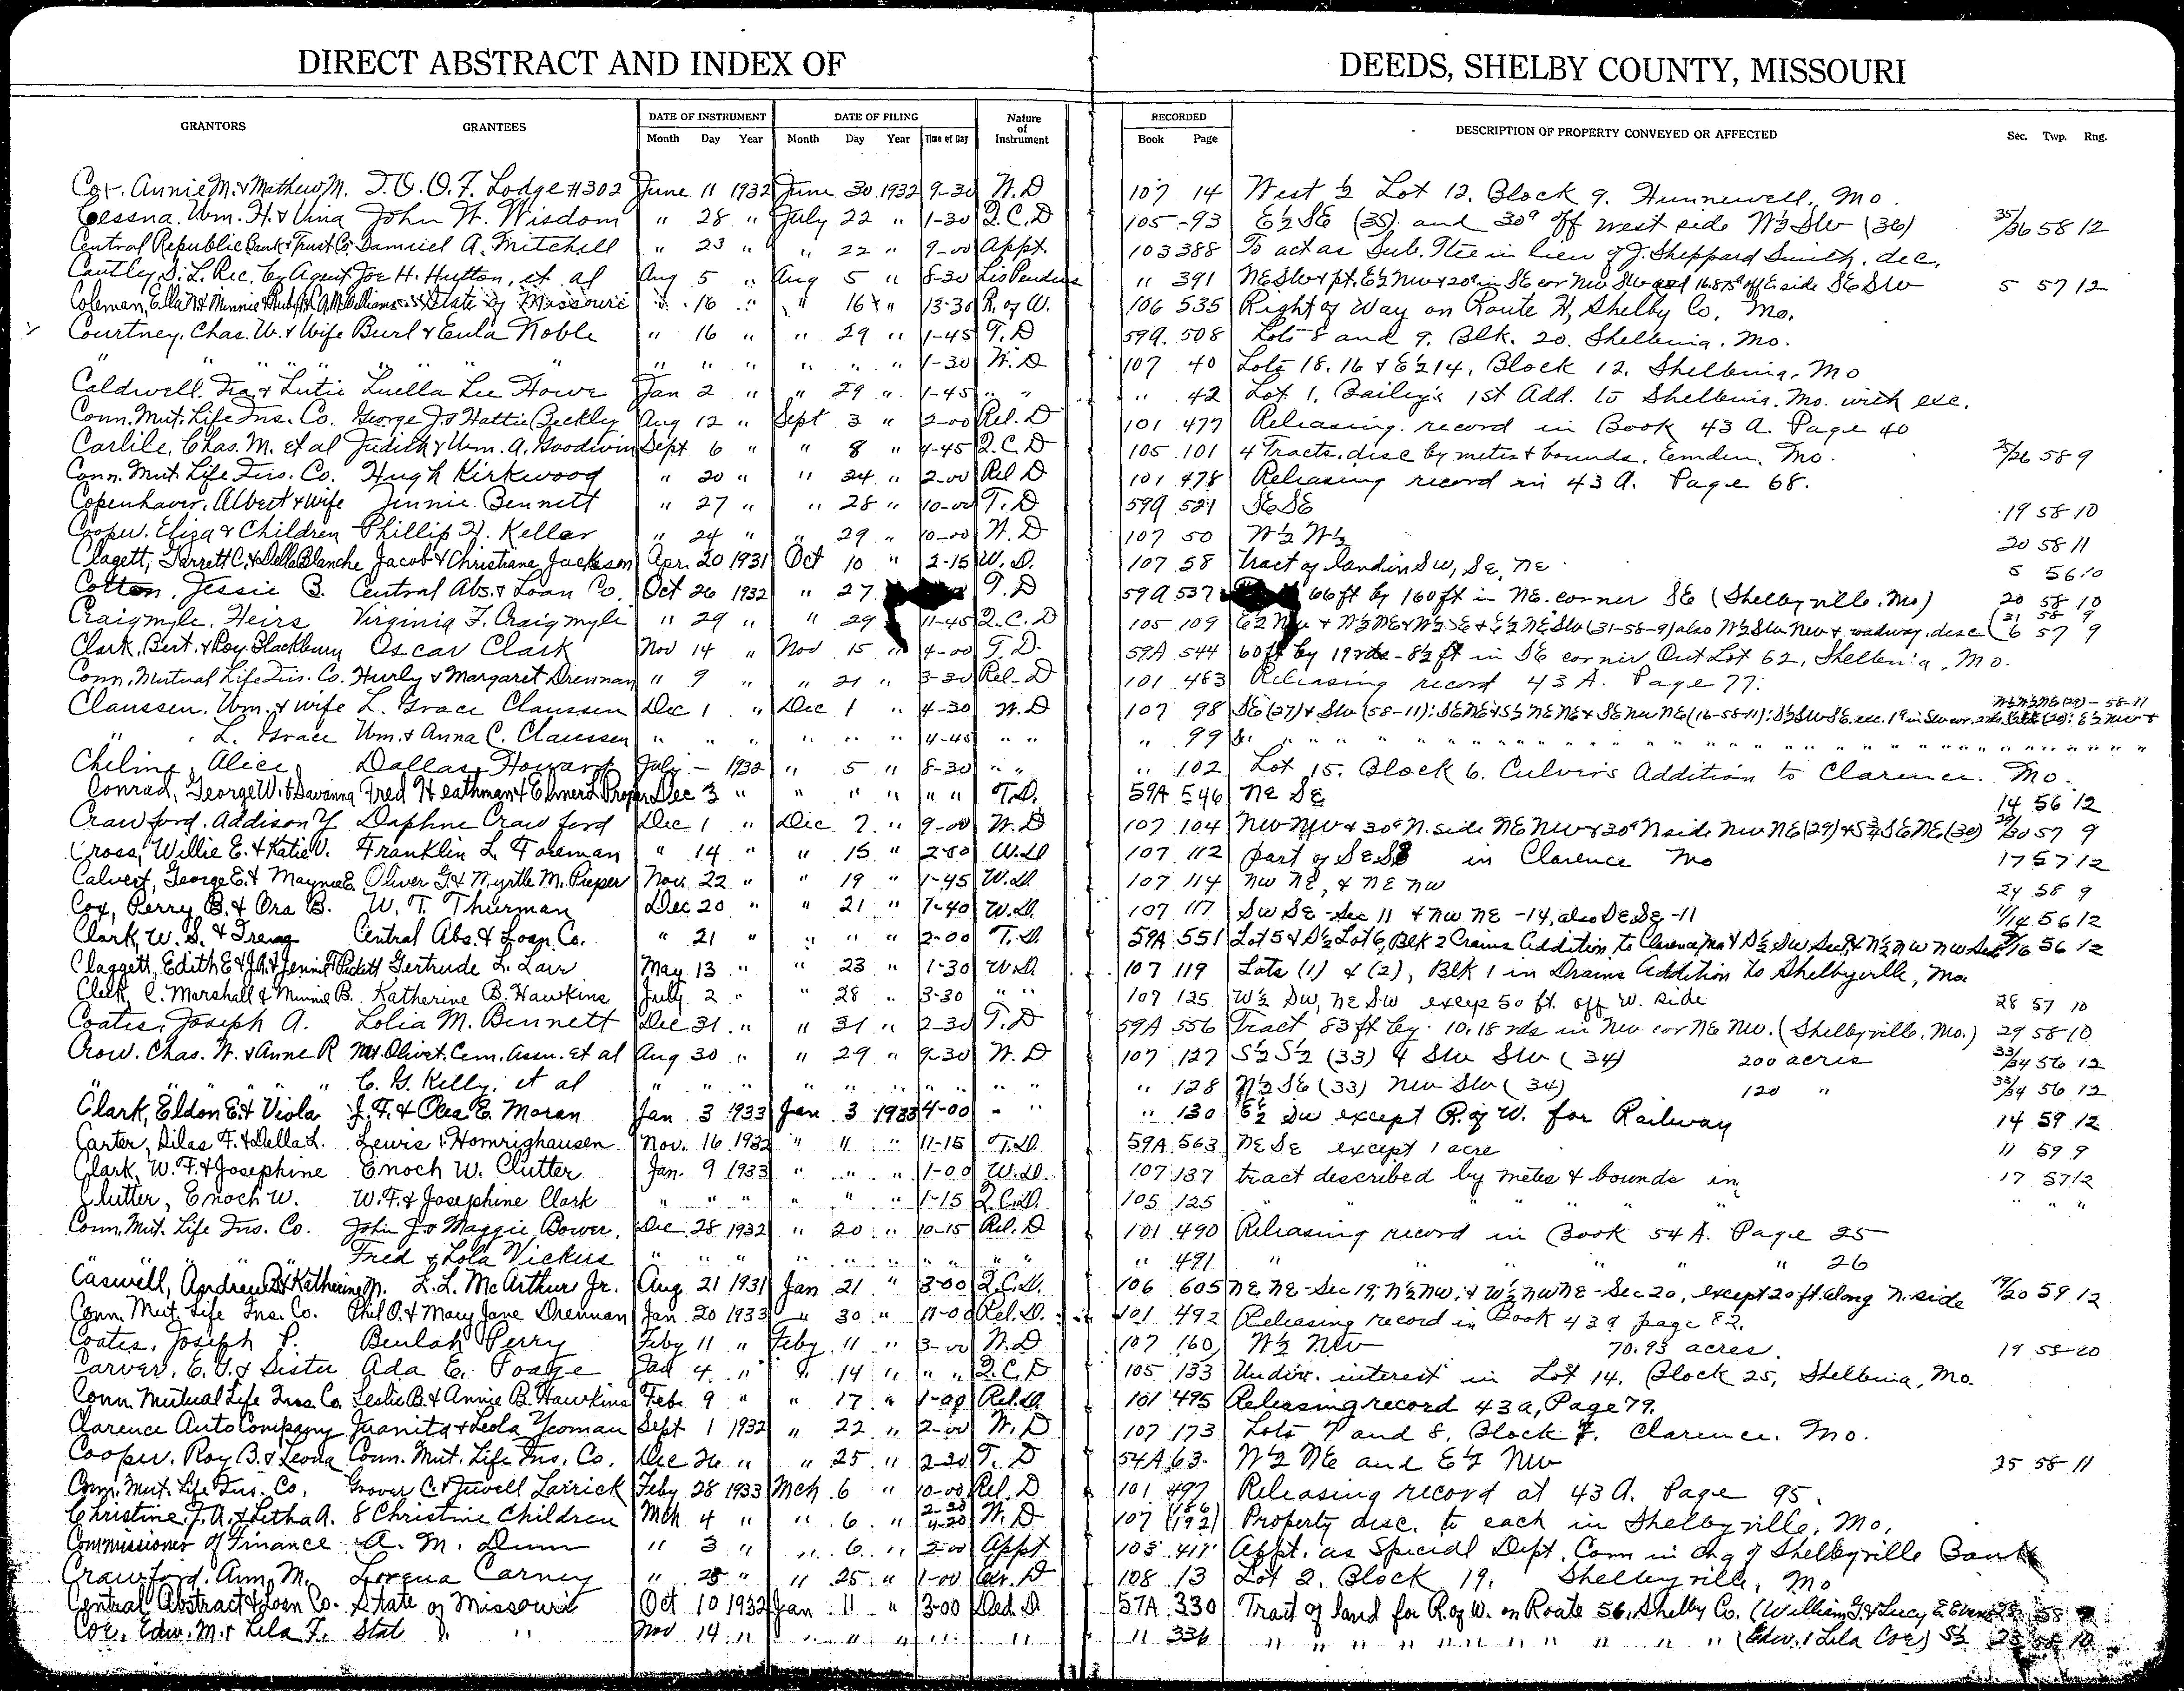 DIRECT ABSTRACT AND INDEX OF DEEDS, SHELBY COUNTY, MISSOURI
GRANTORS GRANTEES DATE OF INSTRUMENT DATE OF FILING Nature of Instrument RECORDED DESCRIPTION OF PROPERTY CONVEYED OR AFFECTED Sec. Twp. Rng.
Month Day Year Month Day Year Time of Day Book Page
Cox. Annie M. & Mathew M. I.O.O.F. Lodge #302 June 11 1932 June 30 1932 9-30 W.D 107 14 West ½ Lot 12. Block 9. Hunnewell, Mo.
Cessna. Wm. H. & Vina John W. Wisdom " 28 " July 22 " 1-30 Q.C.D 105-93 E½ SE (35) and 30a off west side W½ SW (36) 35/36 58 12
Central Republic Bank & Trust Co. Samuel A. Mitchell " 23 " " 22 " 9-00 Appt. 103 388 To act as Sub. Ttee in lieu of J. Sheppard Smith, dec,
Cantley, S. L. Rec. by Agent Joe H. Hutton, et al Aug 5 " Aug 5 " 8-30 Lis Pendens " 391 NE SW & pt. E½ NW & 20a in SE cor NW SW and 16.875a off E side SE SW 5 57 12
Coleman, Ella State of Missouri " 16 " " 16 " 3-30 R. of W. 106 535 Right of Way on Route H, Shelby Co. Mo.
Courtney, Chas. W. & Wife Burl & Eula Noble " 16 " " 29 " 1-45 T.D 59A. 508 Lots 8 and 9. Blk. 20. Shelbina. Mo.
" " " " " " " " " " " " " 1-30 W.D 107 40 Lots 18. 16 & E½ 14, Block 12. Shelbina, Mo
Caldwell. Ira & Lutie Luella Lee Howe Jan 2 " " 29 " 1-45 " " " 42 Lot 1. Bailey's 1st Add. to Shelbina. Mo. with exc.
Conn. Mut. Life Ins. Co. George J. & Hattie Beckley Aug 12 " Sept 3 " 2-00 Rel. D 101 477 Releasing record in Book 43 A. Page 40
Carlile, Chas. M. et al Judith & Wm. A. Goodwin Sept 6 " " 8 " 4-45 Q.C.D 105 101 4 Tracts. disc by metes & bounds, Emden, Mo. 25/26 58 9
Conn. Mut. Life Ins. Co. Hugh Kirkwood " 20 " " 24 " 2-00 Rel D 101 478 Releasing record in 43 A. Page 68.
Copenhaver. Albert & wife Jennie Bennett " 27 " " 28 " 10-00 T.D 59A 521 SE SE 19 58 10
Cooper. Eliza & Children Phillip H. Keller " 24 " " 29 " 10-00 W.D 107 50 W½ W½ 20 58 11
Clagett, Garrett C. & Della Blanche Jacob & Christiana Jackson Apr. 20 1931 Oct 10 " 2-15 W.D. 107 58 tract of land in SW, SE, NE 5 56 10
Cotton, Jessie B. Central Abs. & Loan Co. Oct 26 1932 " 27 T.D 59A 537 66 ft by 160 ft in NE. corner SE (Shelbyville. Mo) 20 58 10
Craigmyle. Heirs Virginia F. Craigmyle " 29 " " 29 11-45 Q.C.D 105 109 E½ & W½ NE & W½ SE & E½ NE SW (31-58-9) also W½ SW NW & roadway. disc (31 58 9 6 57 9
Clark. Bert. & Roy. Blackburn Oscar Clark Nov 14 " Nov 15 " 4-00 T.D. 59A 544 60 ft by 19 rds - 8½ ft in SE corner Out Lot 62, Shelbina, Mo.
Conn. Mutual Life Ins. Co. Hurly & Margaret Drennan " 9 " " 21 " 3-30 Rel. D 101 483 Releasing record 43 A. Page 77.
Claussen. Wm. & wife L. Grace Claussen Dec 1 " Dec 1 " 4-30 W.D 107 98 SE (27) & SW (58-11): SE NE & S½ NE NE & SE NW NE (16-58-11): S½ SW SE. exc. 1a in SW cor. E½ NW & N½ N½ NE (29) - 58-11
" . L. Grace Wm. & Anna C. Claussen " " " " " " 4-45 " " " 99 " " " " " " " "
Chiline, Alice Dallas Howard July - 1932 " 5 " 8-30 " " " 102 Lot 15. Block 6. Culver's Addition to Clarence. Mo.
Conrad, George W. & Savanna Fred Heathman & Elmer L. Proper Dec 3 " " " " " " T.D. 59A 546 NE SE 14 56 12
Crawford. Addison Y Daphne Crawford Dec 1 " Dec 7 " 9-00 W.D 107 104 NW NW & 30a N. side NE NW & 30a N side NW NE (29) & S¾ SE NE (30) 29/30 57 9
Cross, Willie E. & Katie V. Franklin L. Foreman " 14 " " 15 " 2-00 W.D 107 112 part of SE SE in Clarence Mo 17 57 12
Calvert, George E. & Mayme E. Oliver G. & Myrtle M. Pieper Nov. 22 " " 19 " 1-45 W.D. 107 114 NW NE, & NE NW 24 58 9
Cox, Perry B. & Ora B. W. T. Thurman Dec 20 " " 21 " 7-40 W.D. 107 117 SW SE - Sec 11 & NW NE - 14, also SE SE - 11 11/14 56 12
Clark, W. S. & Irena Central Abs. & Loan Co. " 21 " " " 2-00 T.D. 59A 551 Lot 5 & S½ Lot 6, Blk 2 Crains Addition to Clarence, Mo & S½ SW Sec 9 & N½ NW NW Sec 9/16 56 12
Claggett, Edith E & J.A. & Jennie F. Pickett Gertrude L. Lair May 13 " " 23 " 1-30 W.D. 107 119 Lots (1) & (2), Blk 1 in Drains Addition to Shelbyville, Mo.
Cleek, C. Marshall & Minnie B. Katherine B. Hawkins July 2 " " 28 " 3-30 " " 107 125 W½ SW, NE SW except 50 ft. off W. side 28 57 10
Coates, Joseph A. Lolia M. Bennett Dec 31 " " 31 " 2-30 T.D 59A 556 Tract 83 ft by 10.18 rds in NW cor NE NW. (Shelbyville. Mo.) 29 58 10
Crow. Chas. W. & Anne R Mt. Olivet. Cem. Assn. et al Aug 30 " " 29 " 9-30 W.D 107 127 S½ S½ (33) & SW SW (34) 200 acres 33/34 56 12
" " " " " C. G. Kelly, et al " " " " " " " " " " 128 N½ SE (33) NW SW (34) 120 " 33/34 56 12
Clark, Eldon E. & Viola J. F. & Ocea E. Moran Jan 3 1933 Jan 3 1933 4-00 " " " 130 E½ SW except R. of W. for Railway 14 59 12
Carter, Silas F. & Della L. Lewis Homrighausen Nov. 16 1932 " 11 " 11-15 T.D. 59A 563 NE SE except 1 acre 11 59 9
Clark, W. F. & Josephine Enoch W. Clutter Jan. 9 1933 " " " 1-00 W.D. 107 137 tract described by metes & bounds in 17 57 12
Clutter, Enoch W. W. F. & Josephine Clark " " " " " " 1-15 Q.C.D. 105 125 " " " " " " "
Conn. Mut. Life Ins. Co. John J. & Maggie Bower. Dec 28 1932 " 20 " 10-15 Rel. D 101 490 Releasing record in Book 54 A. Page 25
" " " Fred & Lola Vickus " " " " " " " " " 491 " " " " 26
Caswell, Andrew & Katherine M. L. L. McArthur Jr. Aug 21 1931 Jan 21 " 3-00 Q.C.D. 106 605 NE NE - Sec 19; N½ NW, & W½ NW NE - Sec 20, except 20 ft. along N. side 19/20 59 12
Conn. Mut. Life Ins. Co. Phil O. & Mary Jane Drennan Jan. 20 1933 " 30 " Rel. D. 101 492 Releasing record in Book 43a page 82.
Coates, Joseph P. Beulah Perry Feby 11 " Feby 11 " 3-00 W.D 107 160 W½ NW 70.93 acres. 19 58-10
Carver, E. G. & Sister Ada E. Poage Jan 4 " " 14 " " " Q.C.D 105 133 Undiv. interest in Lot 14, Block 25, Shelbina, Mo.
Conn. Mutual Life Ins. Co. Leslie B. & Annie B. Hawkins Feb. 9 " " 17 " 1-00 Rel. D. 101 495 Releasing record 43a, Page 79.
Clarence Auto Company Juanita & Leola Yooman Sept 1 1932 " 22 " 2-00 W.D 107 173 Lots 7 and 8, Block 7. Clarence. Mo.
Cooper. Roy B. & Leona Conn. Mut. Life Ins. Co. Dec 26 " " 25 " 2-30 T. D 54A 63. W½ NE and E½ NW 35 58 11
Conn. Mut. Life Ins. Co. Grover C. & Jewell Larrick Feby 28 1933 Mch 6 " 10-00 Rel. D 101 497 Releasing record at 43 A. Page 95.
Christine, J. A. & Letha A. 8 Christine Children Mch 4 " " 6 " 2-30 4-20 W.D 107 (186 192) Property disc. to each in Shelbyville, Mo.
Commissioner of Finance A. M. Dunn " 3 " " 6 " 2-00 Appt 103 411 Appt. as Special Dept. Com in chg of Shelbyville Bank
Crawford. Ann M. Lorena Carney " 25 " " 25 " 1-00 D 108 13 Lot 2. Block 19. Shelbyville, Mo
Central Abstract & Loan Co. State of Missouri Oct 10 1932 Jan 11 " 3-00 Ded. D. 57A 330 Tract of land for R. of W. on Route 56, Shelby Co. (William G. & Lucy E. 58
Cox, Edw. M. & Lila F. State " " Nov 14 " " " " " " " 336 " " " " " " " " (Edw. & Lila Cox) S½ 23 58 10